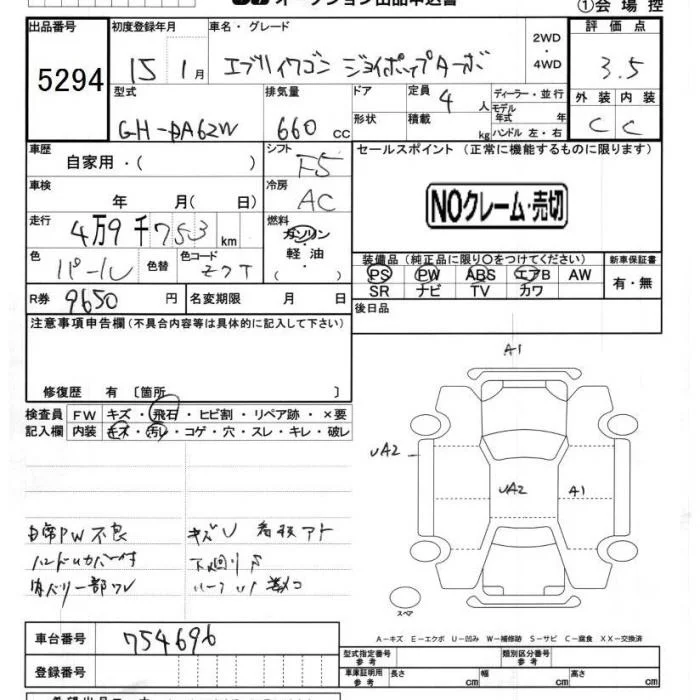 オークション出品申込書
①会場控
出品番号 初度登録年月 車名・グレード 2WD・4WD 評価点
5294 15 1月 エブリイワゴン ジョイポップターボ 3.5
型式 排気量 ドア 定員 4 人 ディーラー・並行 外装 内装
形状 積載 kg モデル年式 年 ハンドル 左・右
GH-DA62W 660 cc C C
車歴 自家用・( ) シフト F5 セールスポイント (正常に機能するものに限ります)
車検 年 月( 日) 冷房 AC
NOクレーム・売切
走行 4万9千753 km 燃料 ガソリン・軽油・( )
色 パール 色替 色コード Z7T
装備品 (純正品に限り○をつけてください) 新車保証書
PS PW ABS エアB AW 有・無
SR ナビ TV カワ
R券 9650 円 名変期限 月 日 後日品
注意事項申告欄(不具合内容等は具体的に記入して下さい)
修復歴 有 〔箇所 〕
検査員 FW キズ・飛石・ヒビ割・リペア跡・×要
記入欄 内装 キズ・汚レ・コゲ・穴・スレ・キレ・破レ
A1
UA2
UA2 A1
PW不良 キズU 看板アト
スペア
A-キズ E-エクボ U-凹み W-補修跡 S-サビ C-腐食 XX-交換済
車台番号 754696 型式指定番号 参考 類別区分番号 参考
登録番号 車庫証明用 参考 長さ cm 幅 cm 高さ cm